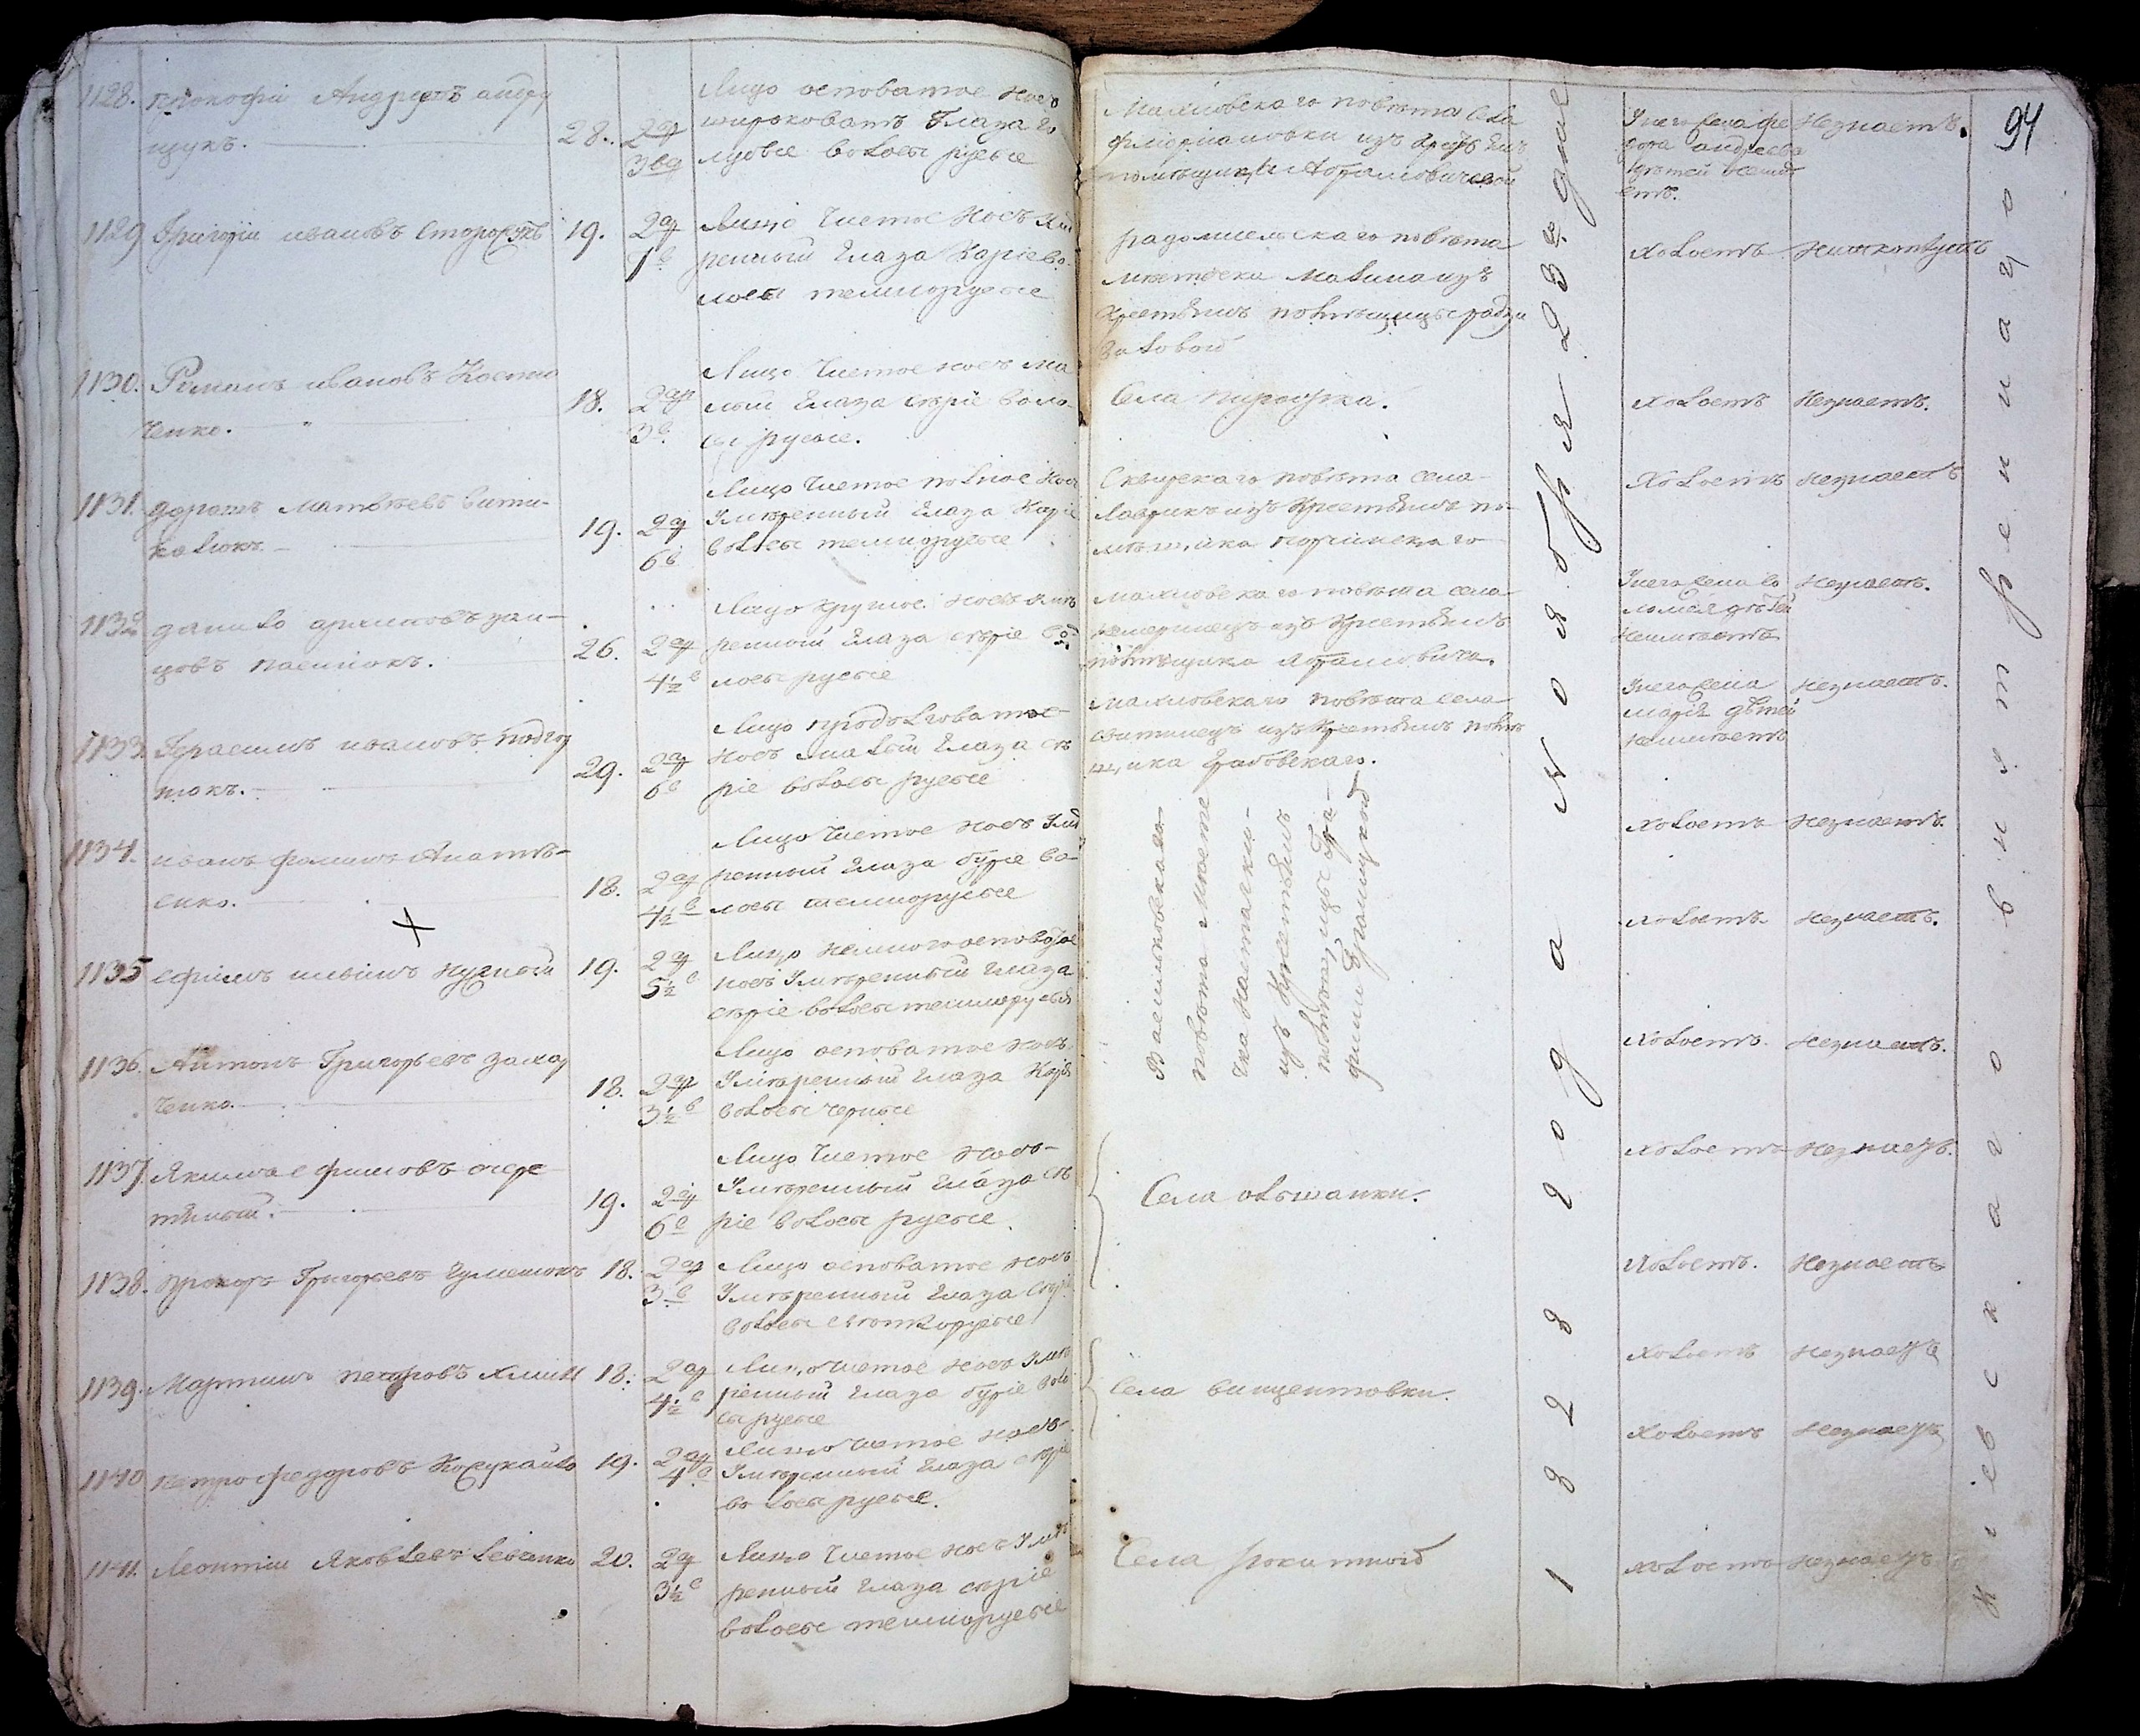 94
1128. прокофій Андреевъ андру
щукъ.
28. 2 ар
3 ве
Лицо осповатое носъ
широковатъ Глаза го
лубые волосы русые
Махновскаго повѣта села
флоріановки изъ крестьянъ
помѣщика Абрамовичевой
У него жена фе
дора андреева
дѣтей неимѣ
етъ.
Незнаетъ.
1129 Григорій ивановъ Сторожукъ
19. 2 ар
7 в
Лицо Чистое носъ умѣ
ренный Глаза Каріе во
лосы темнорусые
радомысльскаго повѣта
мѣстечка малина изъ
крестьянъ помѣщицы радзи
виловой
Холостъ
1130. Романъ ивановъ Костю
ченко.
18. 2 ар
3 в.
Лицо Чистое носъ ма
лый Глаза сѣріе воло
сы русые.
Села пирожка.
Холостъ Незнаетъ.
1131. матвѣевъ вити
калюкъ
19. 2 ар
6 в
Лицо Чистое полное носъ
Умѣренный Глаза Каріе
волосы темнорусые
Сквирскаго повѣта села
Лавриковъ изъ Крестьянъ по
мѣщика
Холостъ незнаетъ
1132 данило архиповъ зай
цовъ пасинокъ.
26. 2 ар
4½ в
Лицо круглое носъ умѣ
ренный Глаза сѣріе во
лосы русые
махновскаго повѣта села
изъ Крестьянъ
помѣщика Абрамовича.
У него жена со
ломея дѣтей
неимѣетъ
незнаетъ.
1133. Герасимъ ивановъ подгу
токъ.
29. 2 ар
6 в
Лицо продолговатое
носъ малый Глаза сѣ
ріе волосы русые
махновскаго повѣта села
свитинецъ изъ Крестьянъ помѣ
щика Грабовскаго.
У него жена
марія дѣтей
неимѣетъ
незнаетъ.
1134. иванъ фоминъ Анатѣ
енко.
18. 2 ар
4½ в
Лицо Чистое носъ умѣ
ренный Глаза буріе во
лосы темнорусые
Васильковскаго
повѣта мѣсте
чка Насташки
изъ Крестьянъ
помѣщицы гра
фини Браницкой
Холостъ Незнаетъ.
1135 ефимъ ильинъ нужный
19. 2 ар
5½ в
Лицо немного осповатое
носъ Умѣренный Глаза
сѣріе волосы темнорусыя
Холостъ Незнаетъ.
1136. Антонъ Григорьевъ захар
ченко.
18. 2 ар
3½ в
Лицо осповатое носъ
Умѣренный Глаза Каріе
волосы черные
Холостъ. Незнаетъ.
1137. Якимъ ефимовъ очере
тяный.
19. 2 ар
6 в
Лицо Чистое носъ
Умѣренный Глаза сѣ
ріе волосы русые.
Села ольшанки.
Холостъ Незнаетъ.
1138. прокопъ Григорьевъ
18. 2 ар
3 в
Лицо осповатое носъ
Умѣренный Глаза сѣріе
волосы свѣтлорусые
Холостъ. Незнаетъ
1139. Мартинъ петровъ
18. 2 ар
4½ в
Лицо чистое носъ умѣ
ренный Глаза буріе воло
сы русые
Села винцентовки.
Холостъ Незнаетъ
1140 петро федоровъ
19. 2 ар
4 в
Лицо чистое носъ
Умѣренный Глаза сѣріе
волосы русые.
Холостъ Незнаетъ
1141. Леонтій Яковлевъ Левченко
20. 2 ар
3½ в
Лицо Чистое носъ умѣ
ренный Глаза сѣріе
волосы темнорусые
Села рокитной
Холостъ Незнаетъ
1828 года Ноября 23го дня
Кіевскаго внутренняго